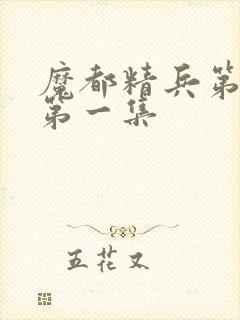 魔都精兵第
第一集
五花又